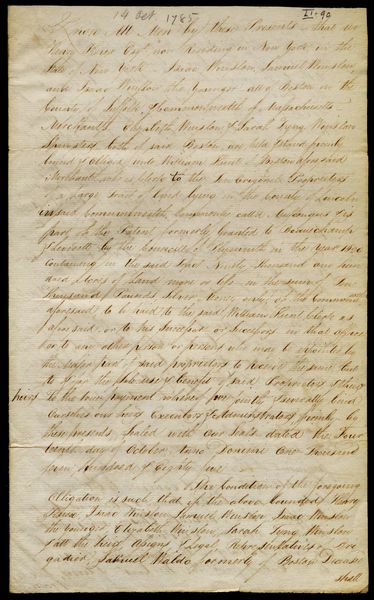 14 Oct. 1785
II-90
Know All Men by these Presents that We
Henry Knox Esqr. now Residing in New York in the
State of New York Isaac Winslow, Samuel Winslow,
and Isaac Winslow the Younger all of Boston in the
County of Suffolk & Commonwealth of Massachusetts
Merchants, Elizabeth Winslow & Sarah Tyng Winslow
Spinsters both of said Boston are held & stand firmly
bound & obliged unto William Hunt Boston aforesaid
Merchant who is Clerk to the Ten Original Proprietors
of a large tract of Land lying in the County of Lincoln
in said Commonwealth, Commonly called
part of the Patent formerly Granted to Beauchamp
& Leverett by the Council of Plymouth in the Year
Containing in the said Tract Ninety Thousand one hun
dred Acres of Land more or less in the sum of
Thousand Pounds Silver Money of the Commonwealth
aforesaid to be paid to the said William Hunt, Clerk as
aforesaid, or to his Successor or Successors in that office
or to any other person or persons who may be appointed by
the major part of said proprietors to Receive the same but
to & for the sole use & benefit of said Proprietors & their
heirs
To the true payment whereof we jointly & severally bind
Ourselves our heirs Executors & Administrators firmly by
these presents, Sealed with our Seals dated the Four
teenth day of October, Anno Domini One Thousand
seven Hundred & Eighty five
The Condition of the foregoing
Obligation is such that if the above bounded Henry
Knox, Isaac Winslow Samuel Winslow Isaac Winslow
the younger Elizabeth Winslow, Sarah Tyng Winslow
& all the heirs, Assigns & Legal Representatives of Bri
gadier Samuel Waldo formerly of Boston Deceased
shall